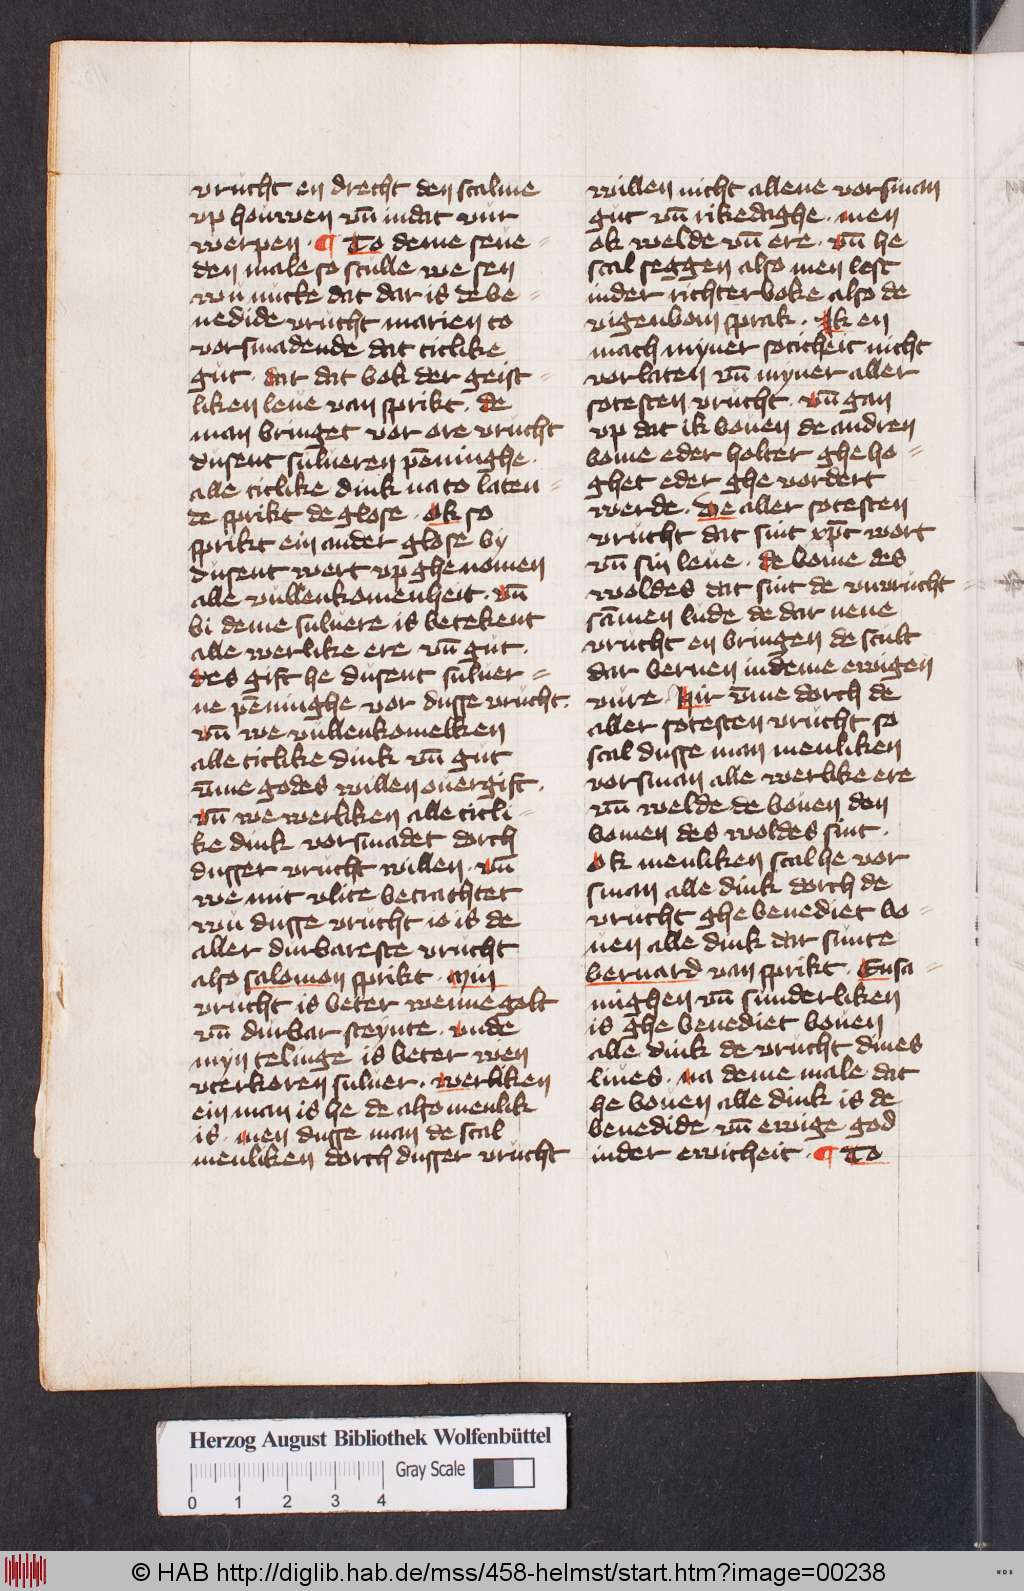 vrucht en drecht den scalme
vp houwen vn̄ in dat vur
werpen · ¶ To deme seue =
den male so sculle we sen
wu nutte dat dar is de be =
nedide vrucht marien to
vorsmadende dat titlike
gut · dar dat bok der geist =
liken leue van sprikt · de
man bringet vor ore vrucht
dusent sulueren pēninghe ·
alle titlike dink na to laten =
de sprikt de glose · Ok so
sprikt ein ander glose by
dusent wert vp ghe nomen
alle vullenkomenheit · vn̄
bi deme suluere is betekent
alle werlike ere vn̄ gut ·
des gift he dusent suluer =
ne pēninghe vor dusse vrucht ·
vn̄ we vullenkomelken
alle titlike dink vn̄ gut
v̄me godes willen ouergift ·
vn̄ we werliken alle titli =
ke dink vorsmadet dorch
dusser vrucht willen · vn̄
we mit vlite betrachtet
wu dusse vrucht io is de
aller durbareste vrucht
also salomon sprikt · Min
vrucht is beter wenne golt
vn̄ durbar steynte · vnde
myn telinge is beter wen
vterkoren suluer · werliken
ein man is he de also menlik
is · men dusse man de scal
menliken dorch dusser vrucht
willen nicht allene vorsman
gut vn̄ rikedaghe · men
ok welde vn̄ ere · vn̄ he
scal seggen also men lest
in der richter boke also de
vigenbom sprak · Ik en
mach myner soticheit nicht
vorlaten vn̄ myner aller
sotesten vrucht · vn̄ gan
vp dat ik bouen de andren
bome eder holter ghe ho =
ghet eder ghe vordert
werde · De aller sotesten
vrucht dat sint xp̄c wort
vn̄ sin leue · de bome des
woldes dat sint de vnvrucht =
sāmen lude de dar nene
vrucht en bringen de scult
dar bernen in deme ewigen
vure · Hir v̄me dorch de
aller sotesten vrucht so
scal dusse man menliken
vorsman alle werlike ere
vn̄ welde de bouen den
bomen des woldes sint ·
Ok menliken scal he vor
sman alle dink dorch de
vrucht ghe benediet bo =
uen alle dink dar sunte
bernard van sprikt · Ensa =
mighen vn̄ sunderliken
is ghe benediet bouen
alle dink de vrucht dines
liues · na deme male dat
he bouen alle dink is de
benedide vn̄ ewige god
in der ewicheit · ¶ To
Herzog August Bibliothek Wolfenbüttel
Gray Scale
0 1 2 3 4
© HAB http://diglib.hab.de/mss/458-helmst/start.htm?image=00238